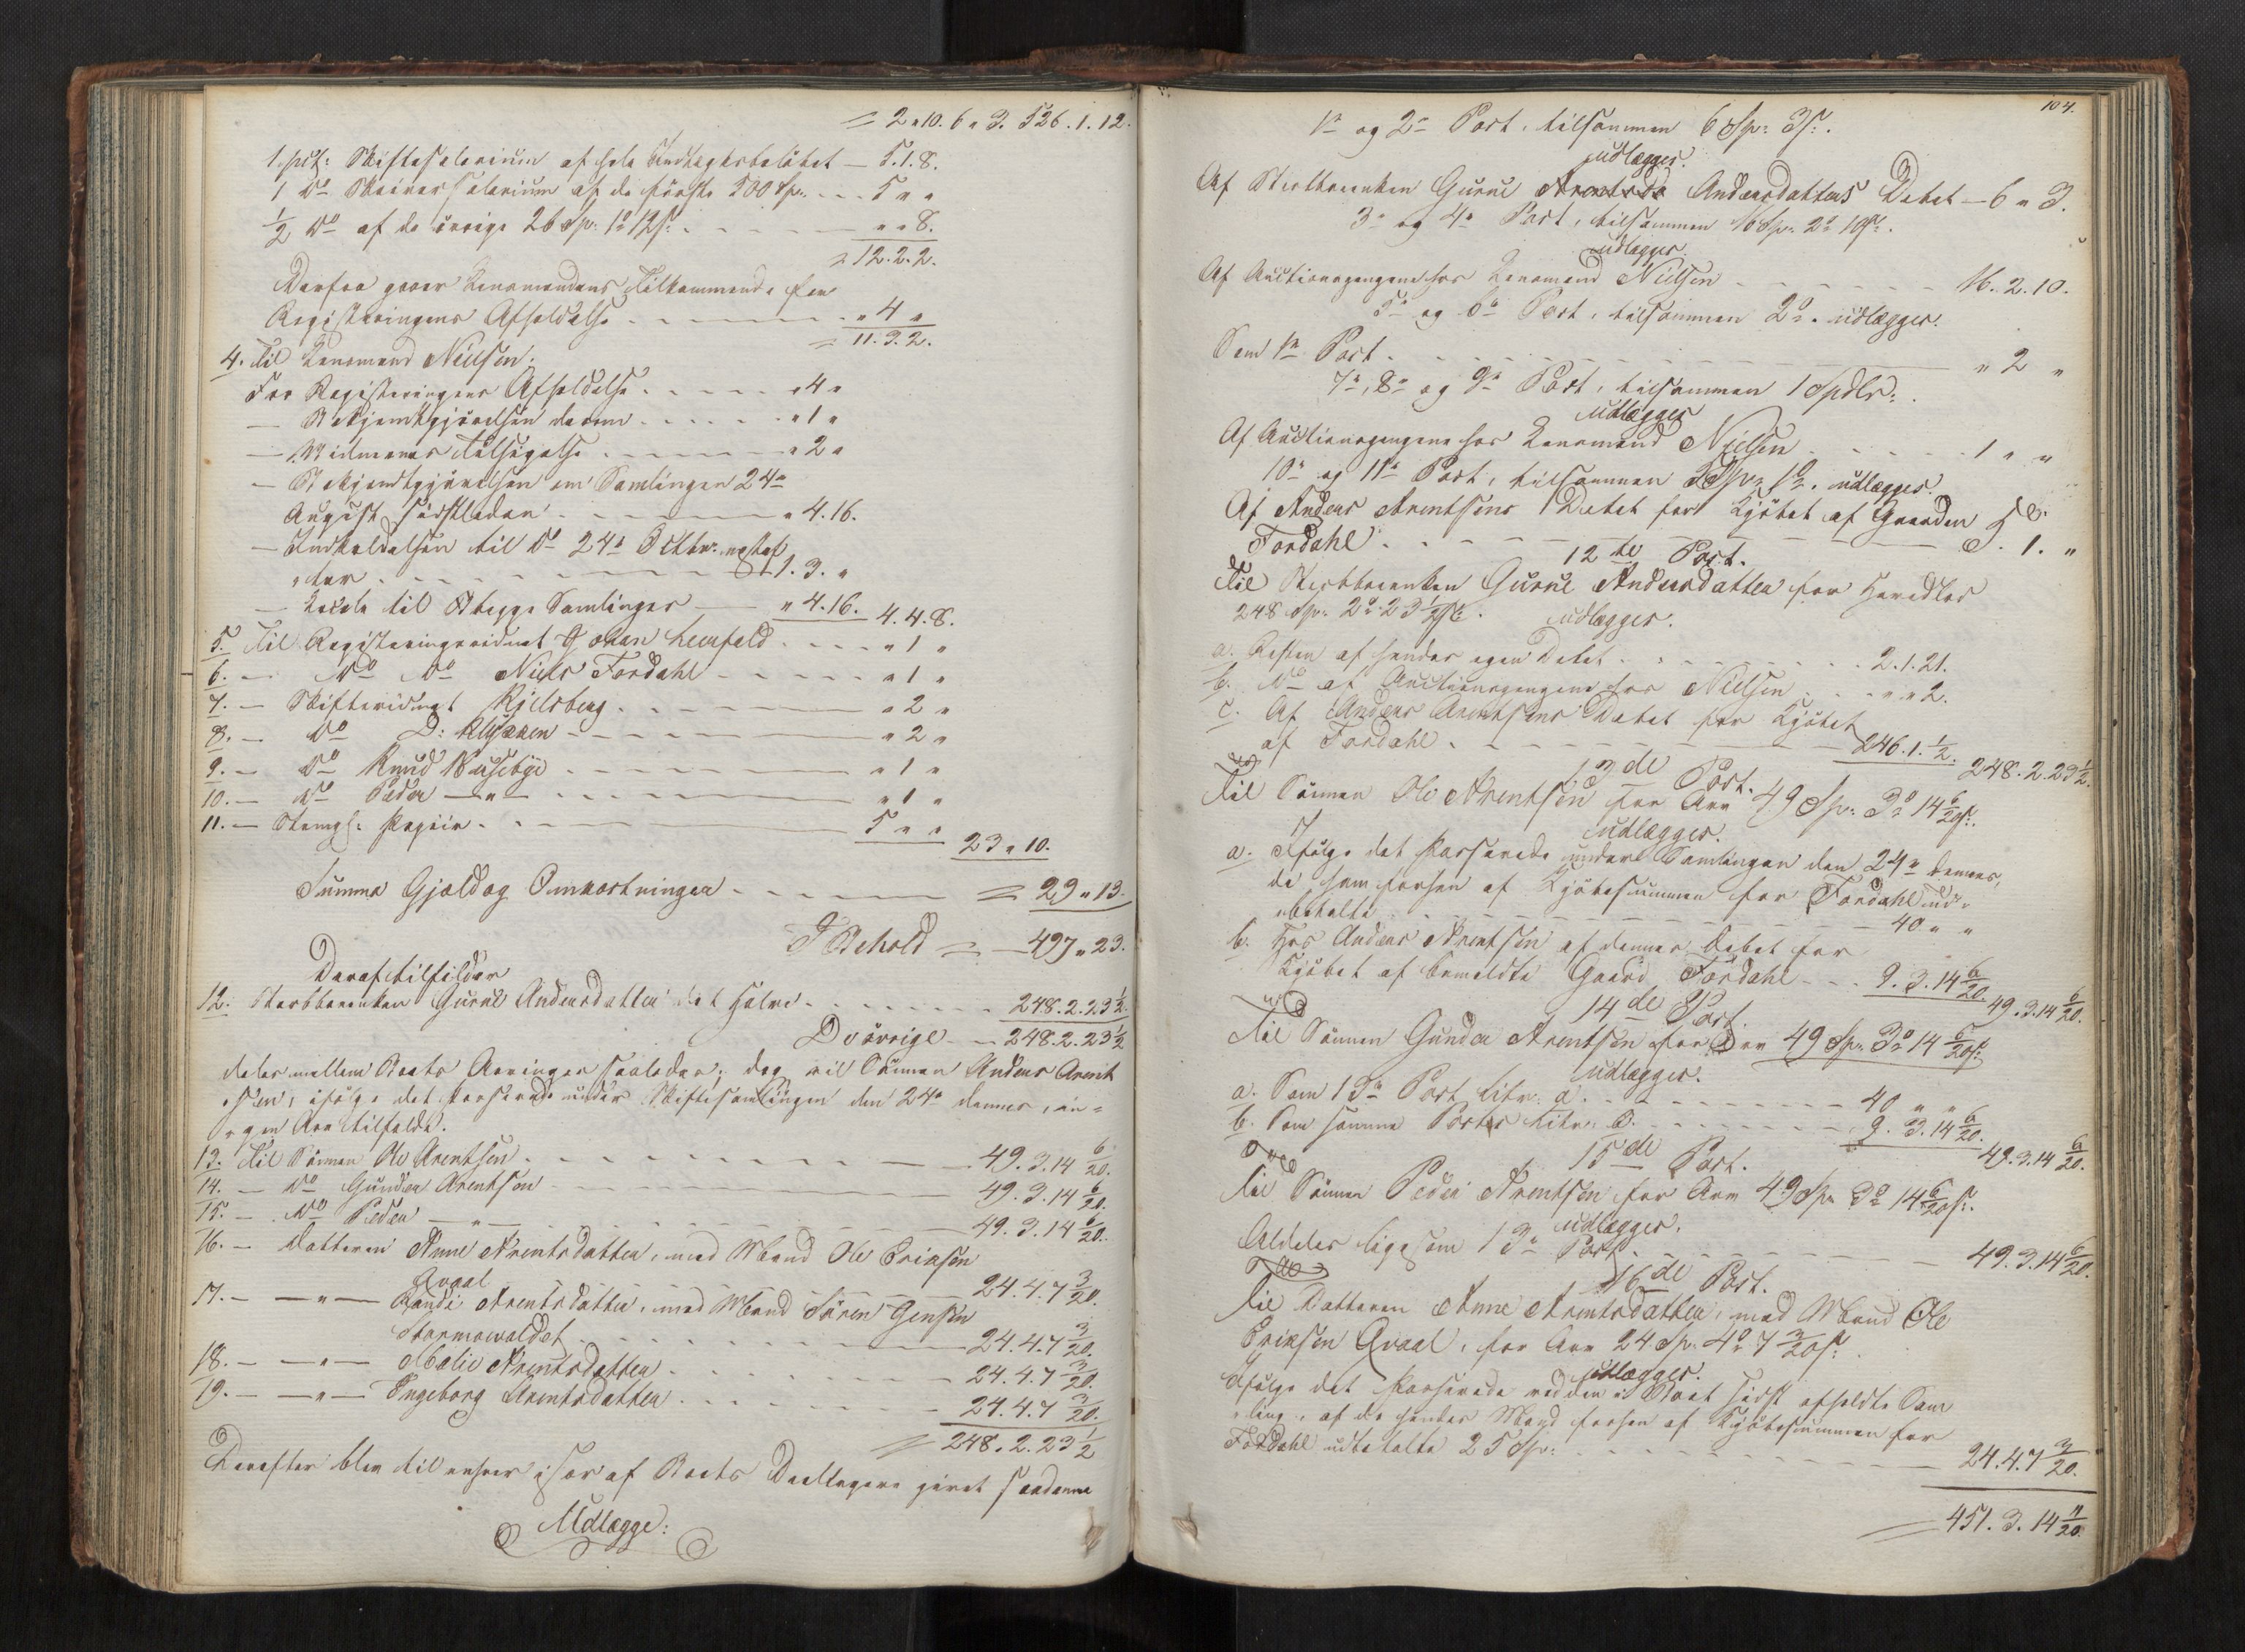 = 2 " 10. 6 " 3. 526.1.12.
1. pCt: Skiftesalarium af hele Indtægtsbeløbet — 5.1.8.
1 Do Skriversalarium af de første 500 Sp: - - - 5 " "
½ Do af de øvrige 26 Sp: 1 12 s: - - - " " 8.
= 12.2.2.
Derfra gaaer Lensmandens Tilkommende for
Registreringens Afholdelse - - - " 4 "
= 11.3.2.
4. Til Lensmand Nielsen:
For Registreringens Afholdelse - - - " 4 "
— Bekjendtgjørelsen derom - - - " 1 "
— Vidnernes Tilsigelse - - - " 2 "
— Bekjendtgjørelsen om Samlingen 24de
August sidstleden - - - " 4.16.
— Indkaldelsen til Do 24de Octbr. næstef
"ter - - - 1.3. "
— Locale til Begge Samlinger — " 4.16. 4.4.8.
5. Til Registreringsvidnet Johan - - - " 1 "
6. — Do Do Niels Fordahl - - - " 1 "
7. — Skiftevidnet Kjelsberg - - - " 2 "
8. — Do D: Klykken - - - " 2 "
9. — Do Knud Huseby - - - " 1 "
10. — Do Peder — " — - - - " 1 "
11. — Stempl: Papiir - - - 5 " " 23 " 10.
Summa Gjæld og Omkostninger - - - = 29 " 13.
I Behold = — 497 " 23.
Deraf tilfalder
12. Sterbbøenken Guru Andersdatter det Halve - - - 248.2.23½.
De øvrige - - 248.2.23½
deles mellem Boets Arvinger saaledes; dog vil Sønnen Anders Arent
"sen, ifølge det passerede under Skiftesamlingen den 24de dennes, in-
"gen Arv tilfalde.
13. Til Sønnen Ole Arentsen - - - 49.3.14 6/20.
14. — Do Gunder Arentsen - - - 49.3.14 6/20.
15. — Do Peder — " — - - - 49.3.14 6/20.
16. — Datteren Anne Arentsdatter, med Mand Ole Eriksen
Qvaal - - - 24.4.7 3/20.
17. — — " — Randi Arentsdatter, med Mand Søren Jensen
- - - 24.4.7 3/20.
18. — — " — Malie Arentsdatter - - - 24.4.7 3/20.
19. — — " — Ingeborg Arentsdatter - - - 24.4.7 3/20.
= 248.2.23½
Derefter blev til enhver især af Boets Deeltagere gjort saadanne
Udlægge:
104.
1ste og 2den Post, tilsammen 6 Sp: 3 s:
udlægges.
Af Sterbbøenken Guru Andersdatters Debet — 6 " 3.
3de og 4de Post, tilsammen 16 Sp: 2 10 s:
udlægges.
Af Auctionspengene hos Lensmand Nielsen - - - 16.2.10.
5te og 6te Post, tilsammen 2 udlægges.
Som 1ste Post - - - " 2 "
7de, 8de og 9de Post, tilsammen 1 Spdlr:
udlægges
Af Auctionspengene hos Lensmand Nielsen - - - 1 " "
10de og 11te Post, tilsammen 5 Sp: 1 udlægges.
Af Anders Arentsens Debet for Kjøbet af Gaarden
Fordahl - - - 5.1. "
12te Post.
Til Sterbbøenken Guru Andersdatter for Hovedlod
248 Sp: 2 23½ s: udlægges.
a. Resten af hendes egen Debet - - - 2.1.21.
b. Do af Auctionspengene hos Nielsen - - - " " 2.
c. Af Anders Arentsens Debet for Kjøbet
af Fordahl - - - 246.1.½. 248.2.23½.
13de Post.
Til Sønnen Ole Arentsen for Arv 49 Sp: 3 14 6/20 s:
udlægges.
a. Ifølge det Passerede under Samlingen den 24de dennes,
de ham forhen af Kjøbesummen for Fordahl ud-
"betalte - - - 40 " "
b. Hos Anders Arentsen af dennes Debet for
Kjøbet af bemeldte Gaard Fordahl - - - 9.3.14 6/20. 49.3.14 6/20.
14de Post
Til Sønnen Gunder Arentsen for Arv 49 Sp: 3 14 6/20 s:
udlægges.
a. Som 13de Post Litr. a. - - - 40 " "
b. Som samme Postes Litr. b. - - - 9.3.14 6/20. 49.3.14 6/20.
15de Post.
Til Sønnen Peder Arentsen for Arv 49 Sp: 3 14 6/20 s:
udlægges.
Aldeles ligesom 13de Post - - - 49.3.14 6/20.
16de Post.
Til Datteren Anne Arentsdatter, med Mand Ole
Eriksen Qvaal, for Arv 24 Sp: 4 7 3/20 s:
udlægges.
Ifølge det Passerede ved den i Boet sidst afholdte Sam
"ling, af de hendes Mand forhen af Kjøbesummen for
Fordahl udbetalte 25 Sp: - - - 24.4.7 3/20.
= 451.3.14 11/20.